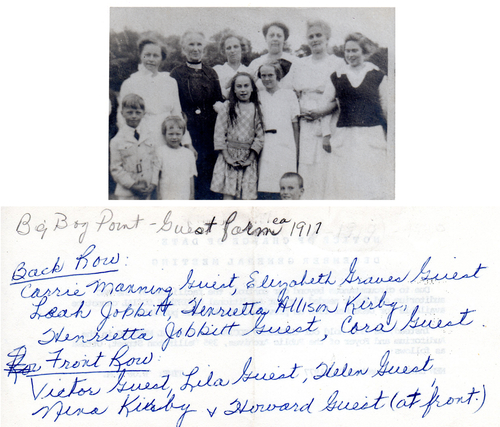 Big Bay Point - Guest farm ca 1917
Back Row:
Carrie Manning Guest, Elizabeth Graves Guest
Leah Jobbitt, Henrietta Allison Kirby,
Henrietta Jobbitt Guest, Cora Guest.
Front Row:
Victor Guest, Lila Guest, Helen Guest,
Nina Kirby & Howard Guest (at front.)